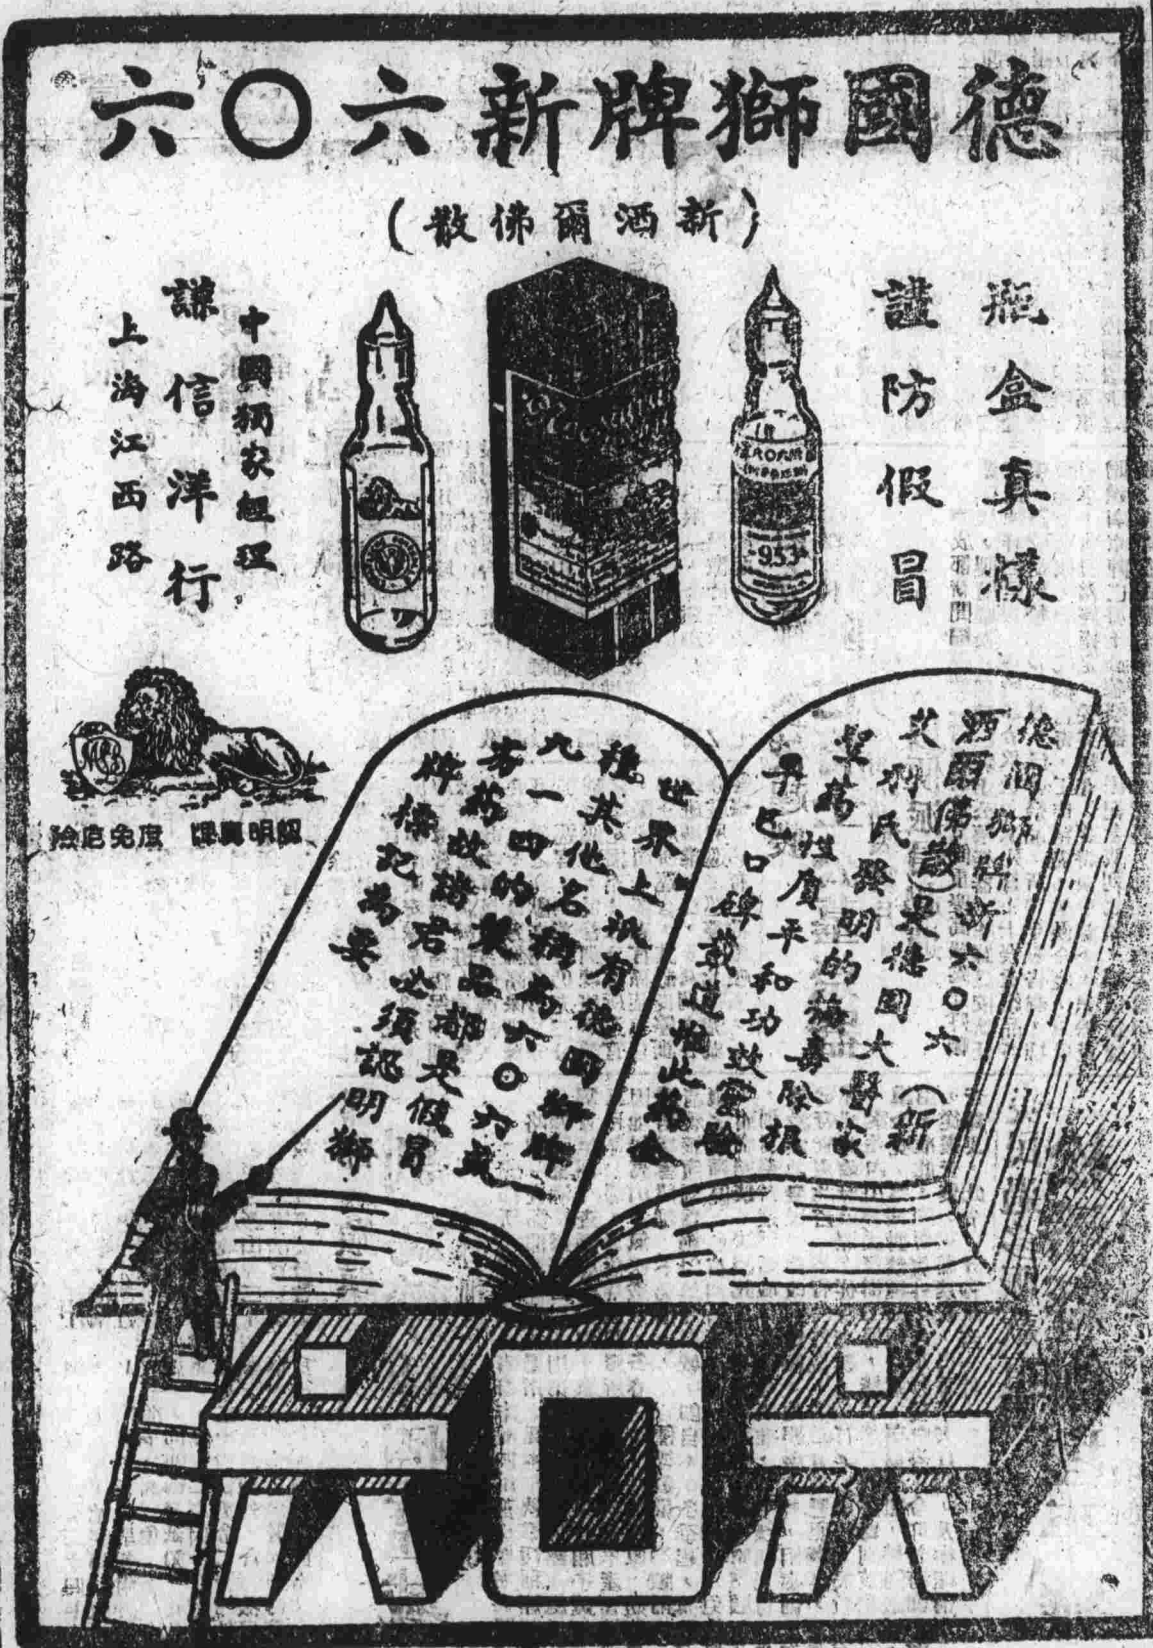 德國獅牌新六〇六
(新洒爾佛散)
瓶盒真樣
謹防假冒
953
中國獨家經理
謙信洋行
上海江西路
認明真牌 庶免危險
德國獅牌新六〇六（新
洒爾佛散）是德國大醫家
艾利氏發明的梅毒除根
聖藥性質平和功效靈驗
早已口碑載道惟此藥全
世界上祇有德國獅牌一
種其他名稱為六〇六或
九一四的製品都是假冒
劣藥故諸君必須認明獅
牌標記為要
六〇六